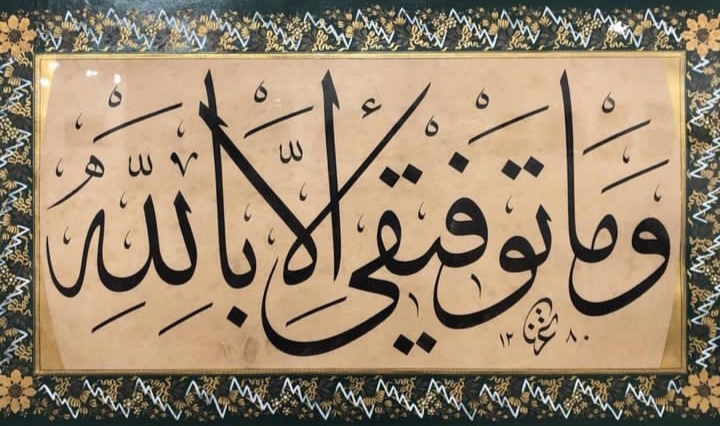 وَمَا تَوْفِيقِي إِلَّا بِاللَّهِ
١٢٨٠